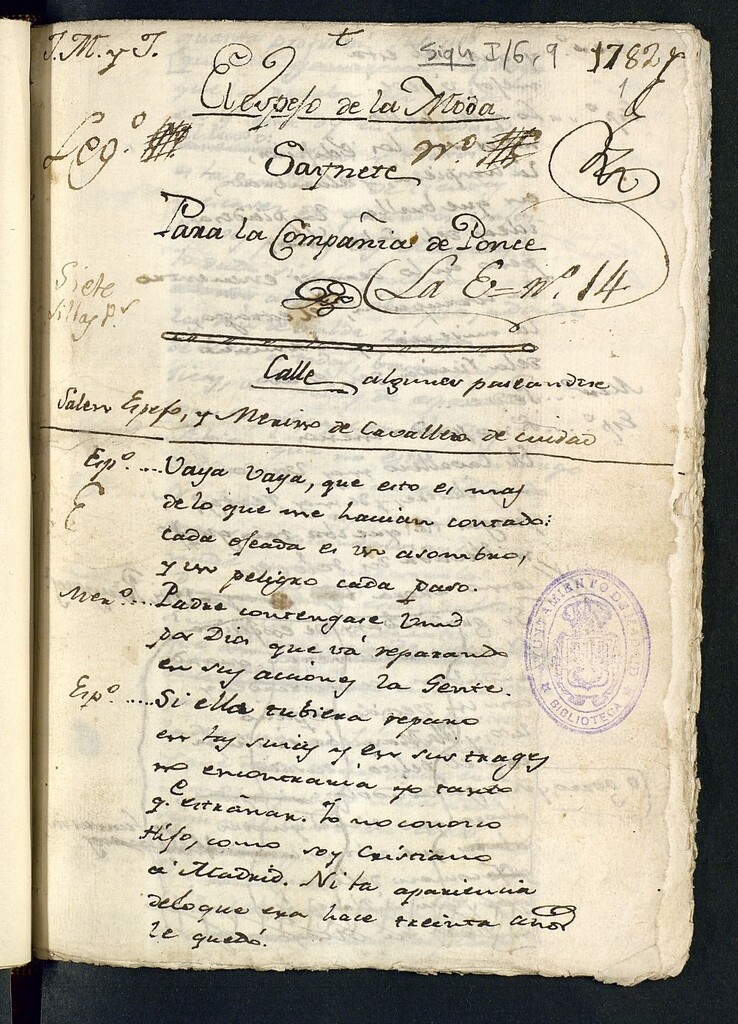 J. M. y J.
t
Sign I/6, 9
1782
1
El espejo de la Moda
Leg.º
N.º
Saynete
Para la Compañia de Ponce
La E= nº. 14
Siete
sillas p.r
Calle algunos paseandose
Salen Espejo, y Merino de Cavallero de ciudad
Esp.º .... Vaya vaya, que esto es mas
delo que me havian contado:
cada ojeada es un asombro,
y un peligro cada paso.
Mer.º .... Padre contengase Vmd
por Dios que vá reparando
en sus acciones la Gente.
Esp.º ..... Si ella tubiera reparo
en las suias y en sus trages
no encontraria yo tanto
q.e estrañar. Yo no conozco
Hijo, como soy Cristiano
a Madrid. Ni la apariencia
delo que era hace treinta años
le quedó.
AYUNTAMIENTO DE MADRID
BIBLIOTECA